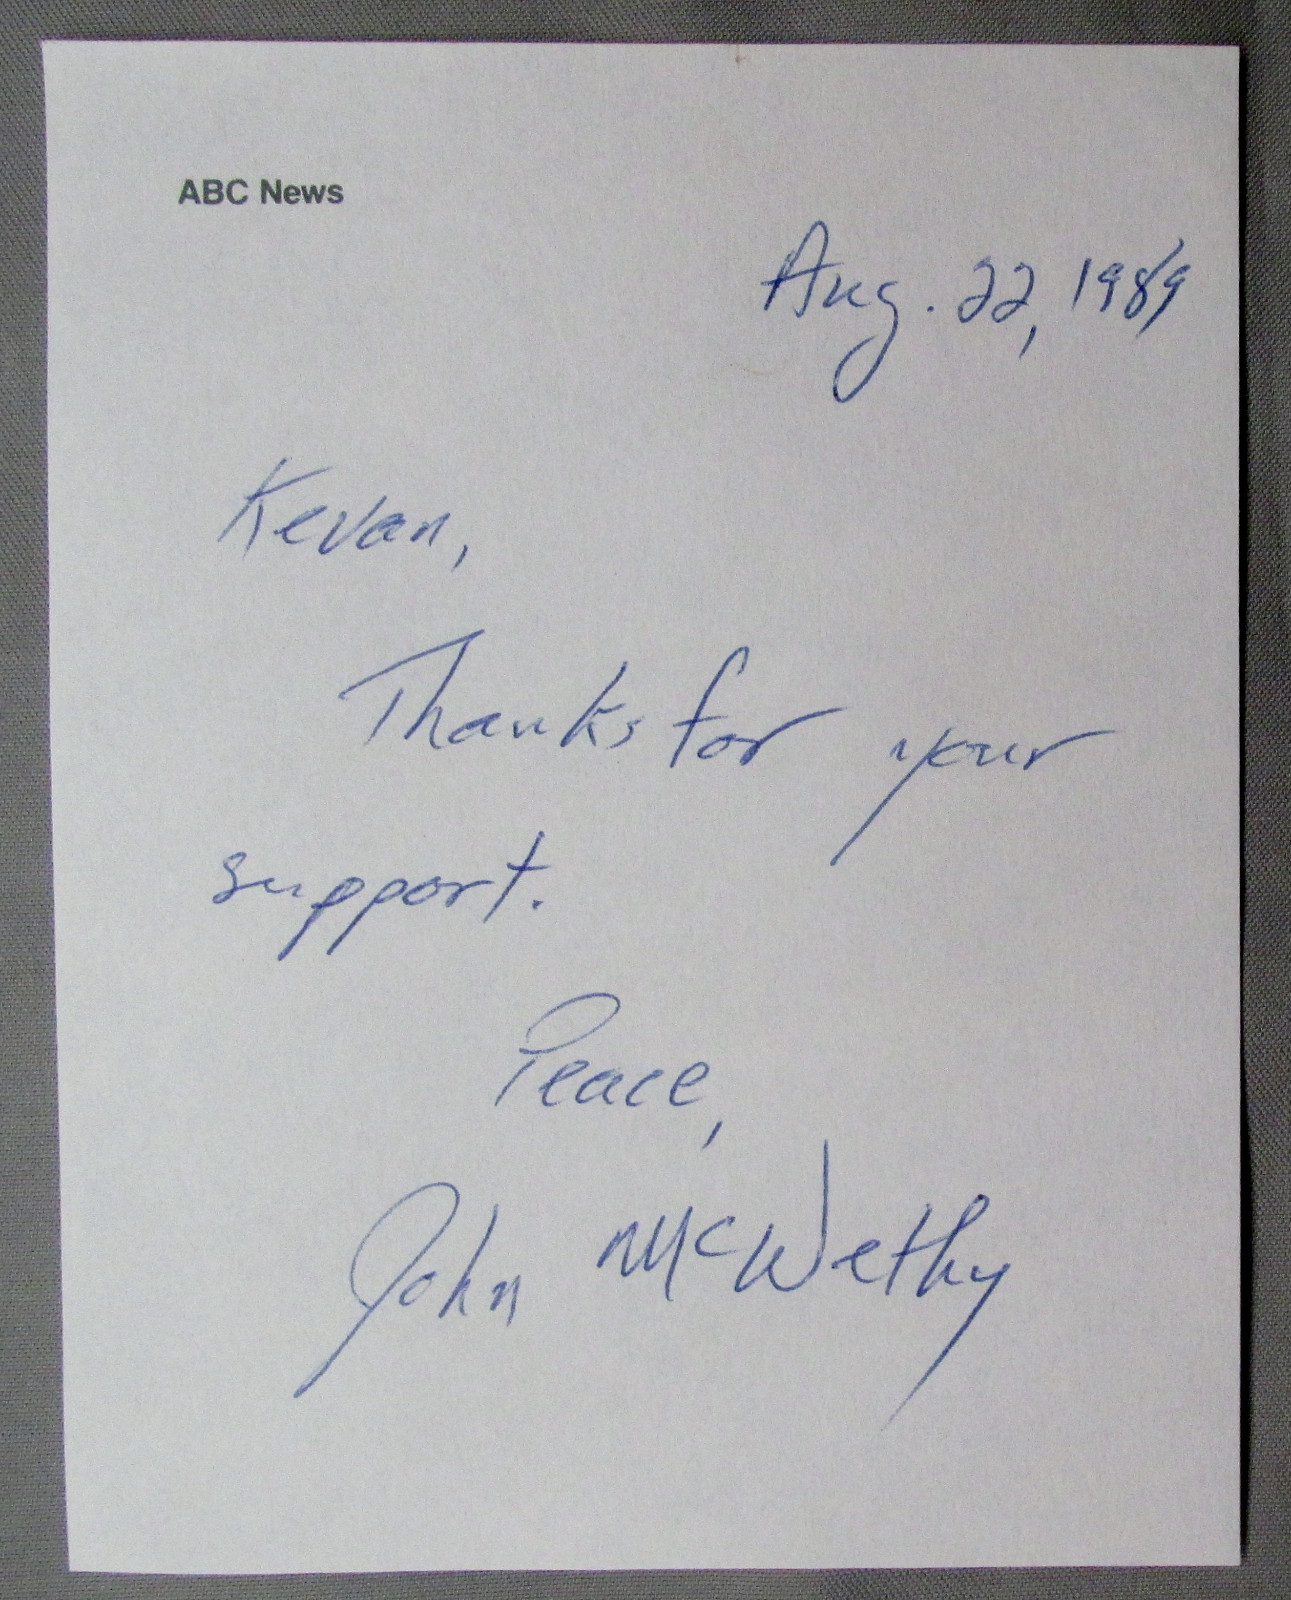 ABC News
Aug. 22, 1989
Kevan,
Thanks for your
support.
Peace,
John McWethy